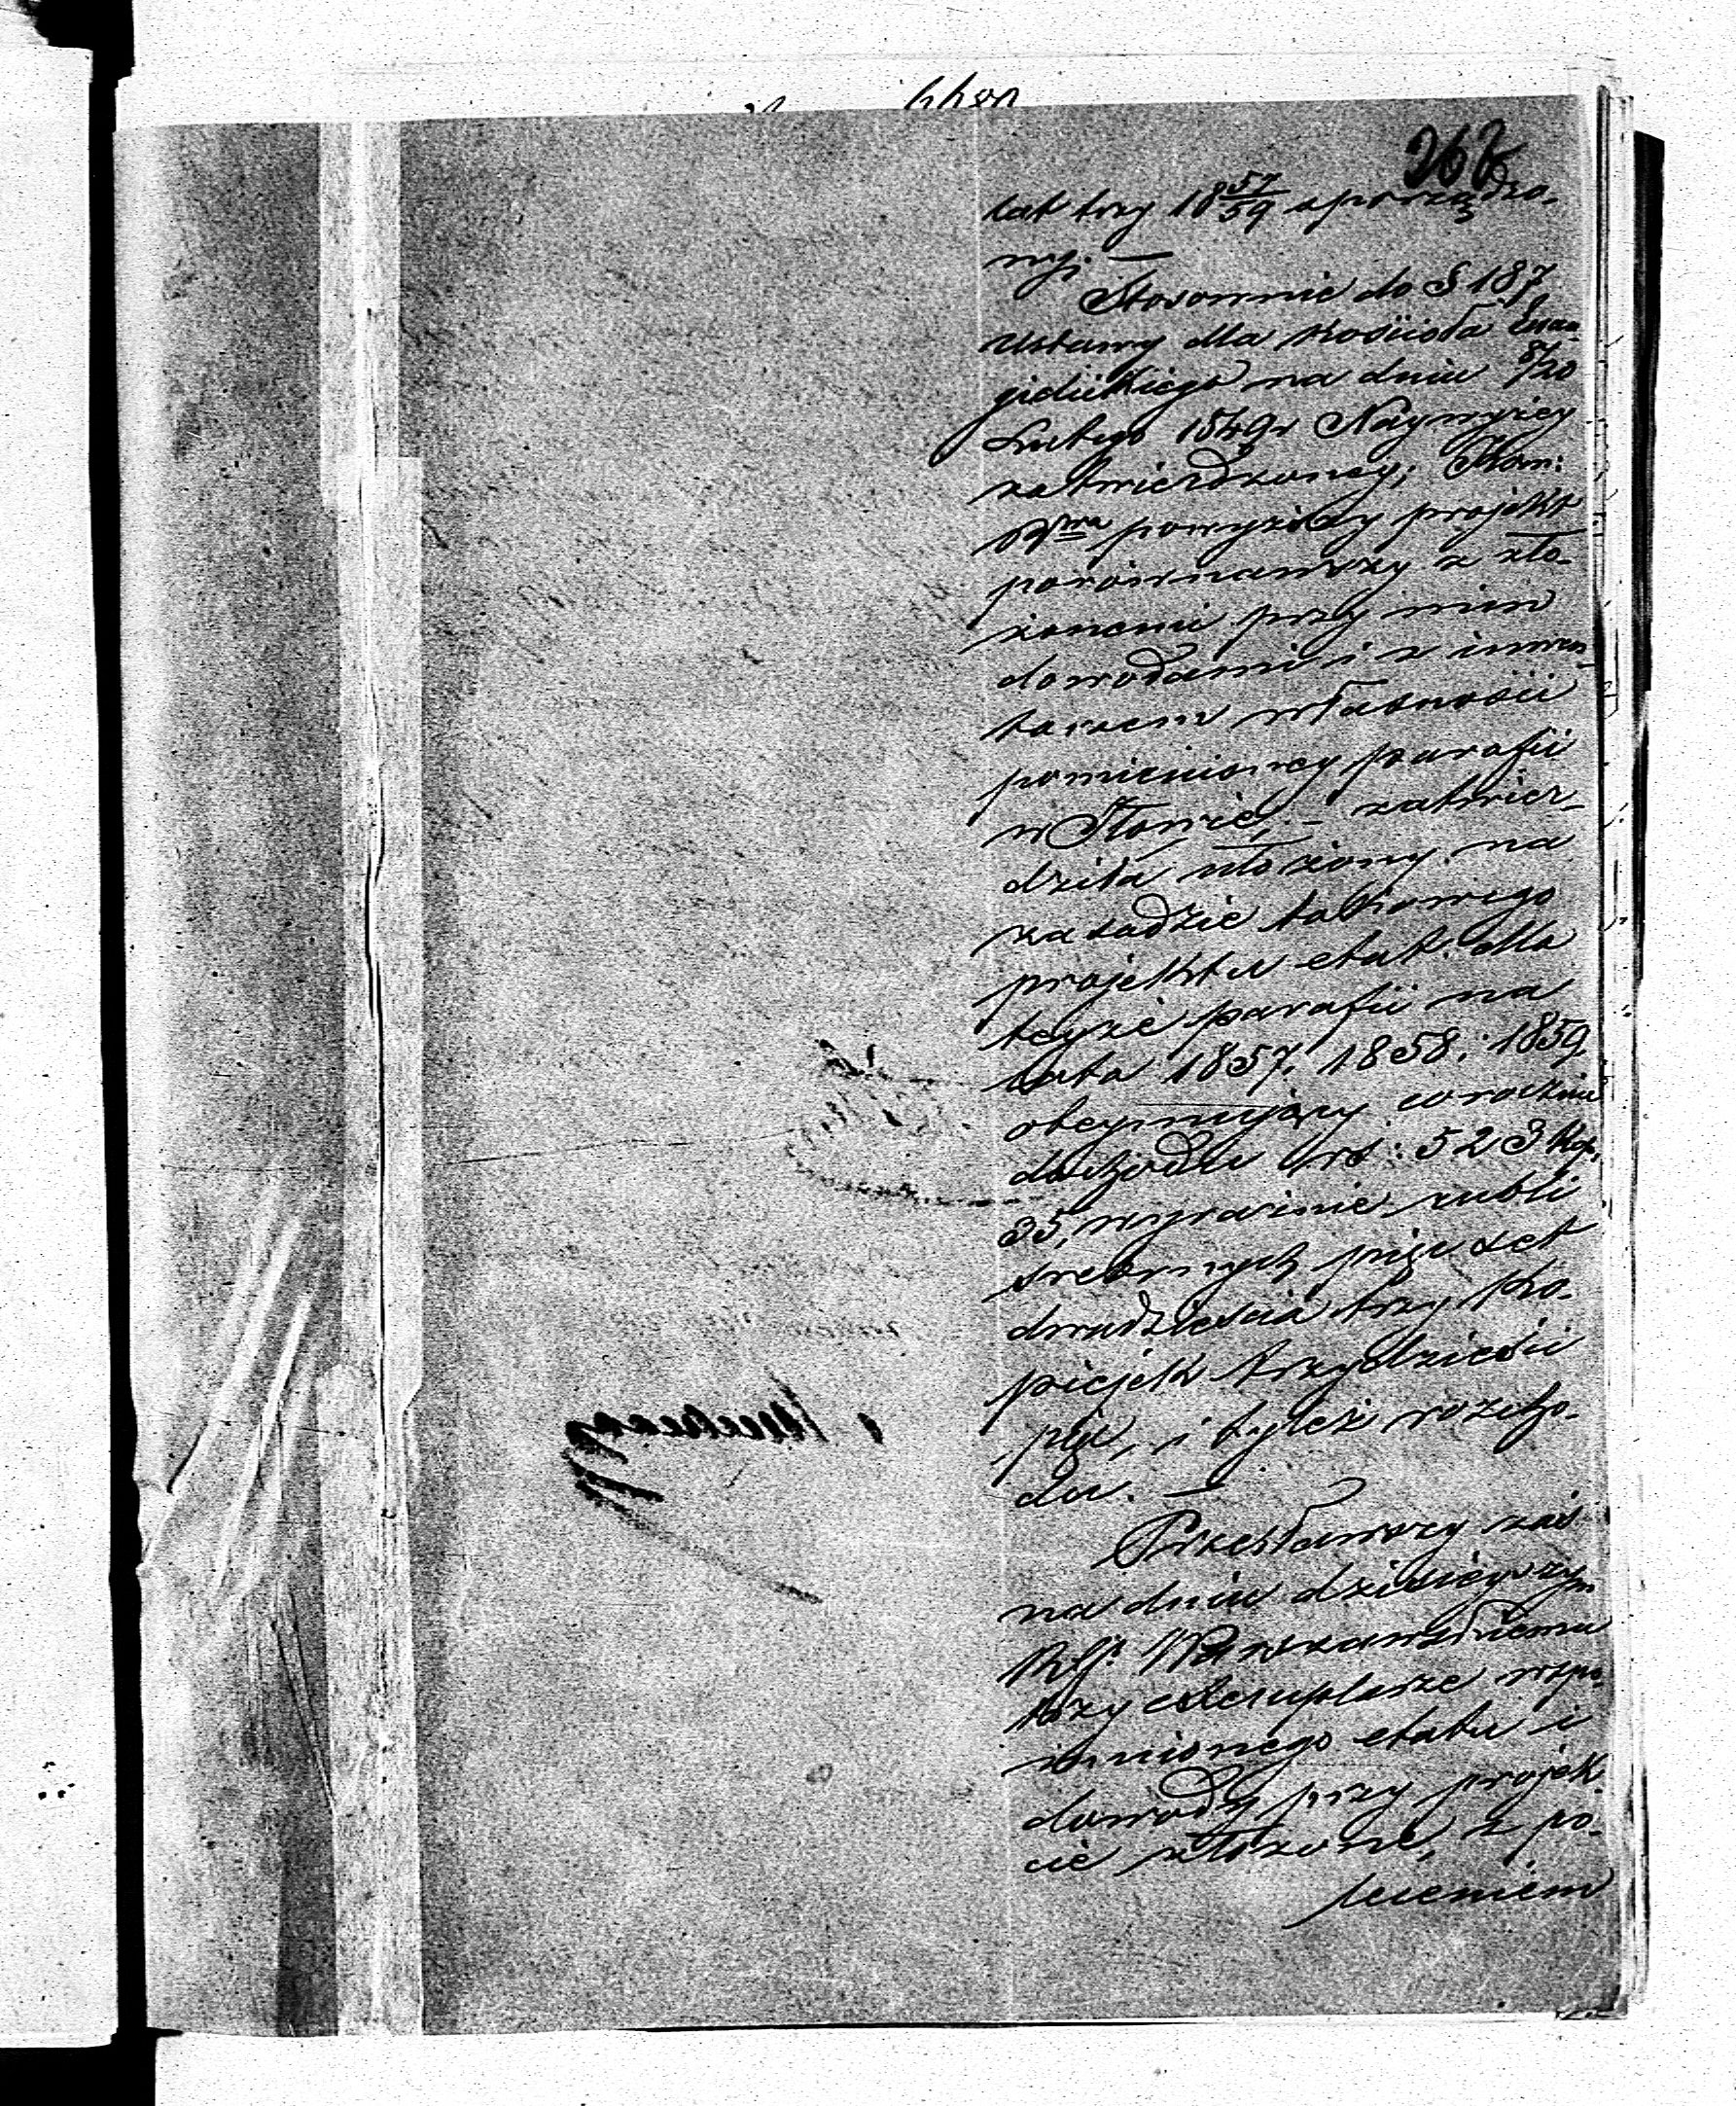 262
lat trzy 18 57/59 sporządzo-
ny. —
Stosownie do § 187
Ustawy dla Kościoła Ewan-
gielickiego na dniu 8/20
Lutego 1849 r Naywyżey
zatwierdzoney; Kom:
powyższy projekt
porównawszy z zło-
żonemi przy nim
dowodami i z inwen-
tarzem własności
pomienioney parafii
w Iłowie, — zatwier-
dziła ułożony na
zasadzie takowego
projektu etat dla
teyże parafii na
lata 1857. 1858. i 1859.
obeymujący corocznie
dochodu rs: 523 kop.
35, wyraźnie rubli
srebrnych pięćset
dwadzieścia trzy ko-
piejek trzydzieści
pięć, i tyleż rozcho-
du. —
Przesławszy zaś
na dniu dzisieyszym
Warszawskiemu
trzy exemplarze wspo-
mnionego etatu i
dowody przy projek-
cie złożone, z po-
leceniem